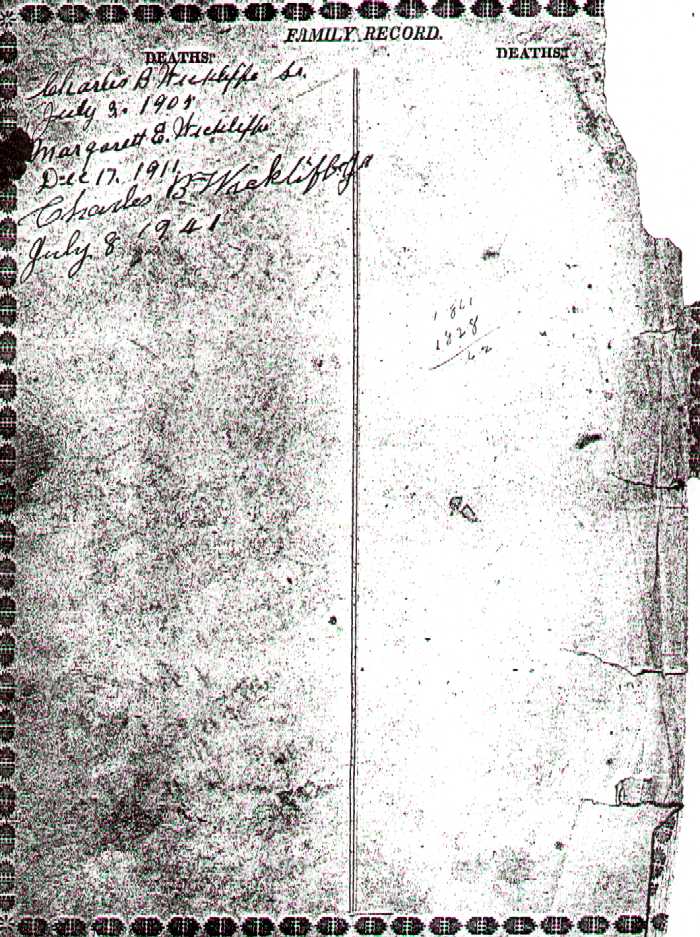 FAMILY RECORD.
DEATHS.
DEATHS.
Charles B Wickliffe Sr.
July 3. 1905
Margarett E. Wickliffe
Dec 17. 1911
Charles B Wickliffe Jr
July 8 1941
1861
1828
62